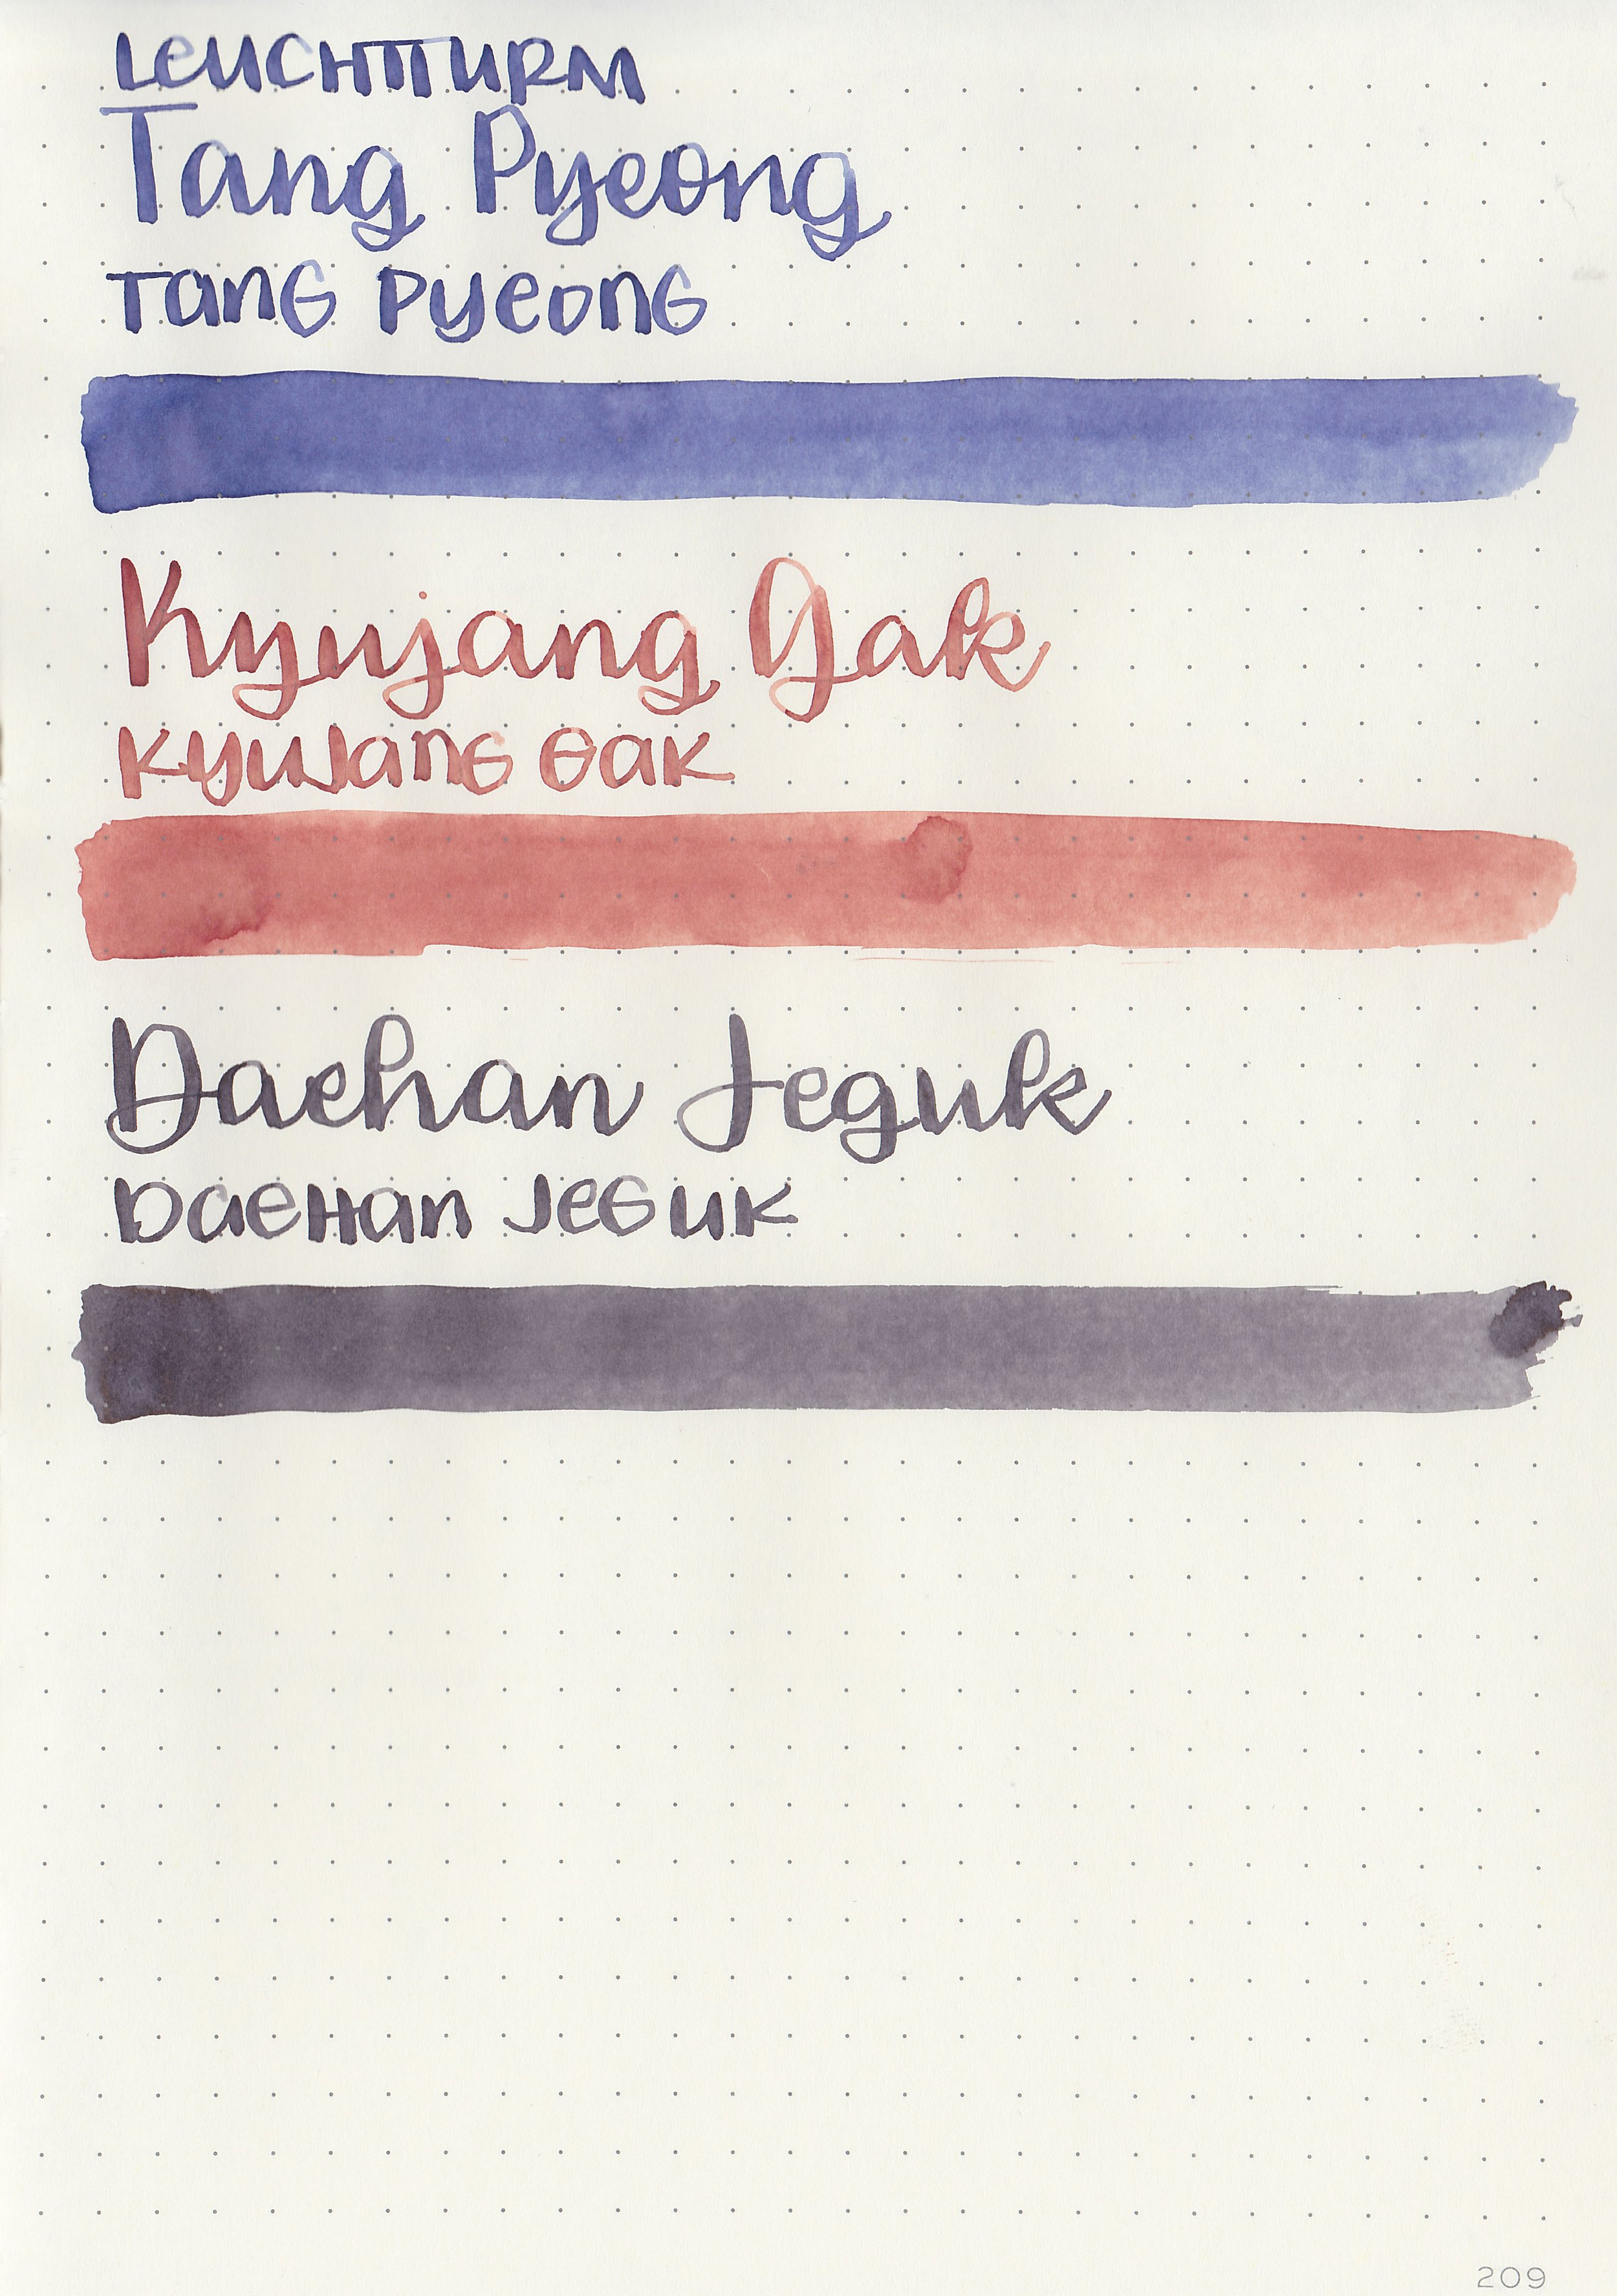 LEUCHTTURM
Tang Pyeong
Tang Pyeong
Kyujang Gak
Kyujang Gak
Daehan Jeguk
Daehan Jeguk
209